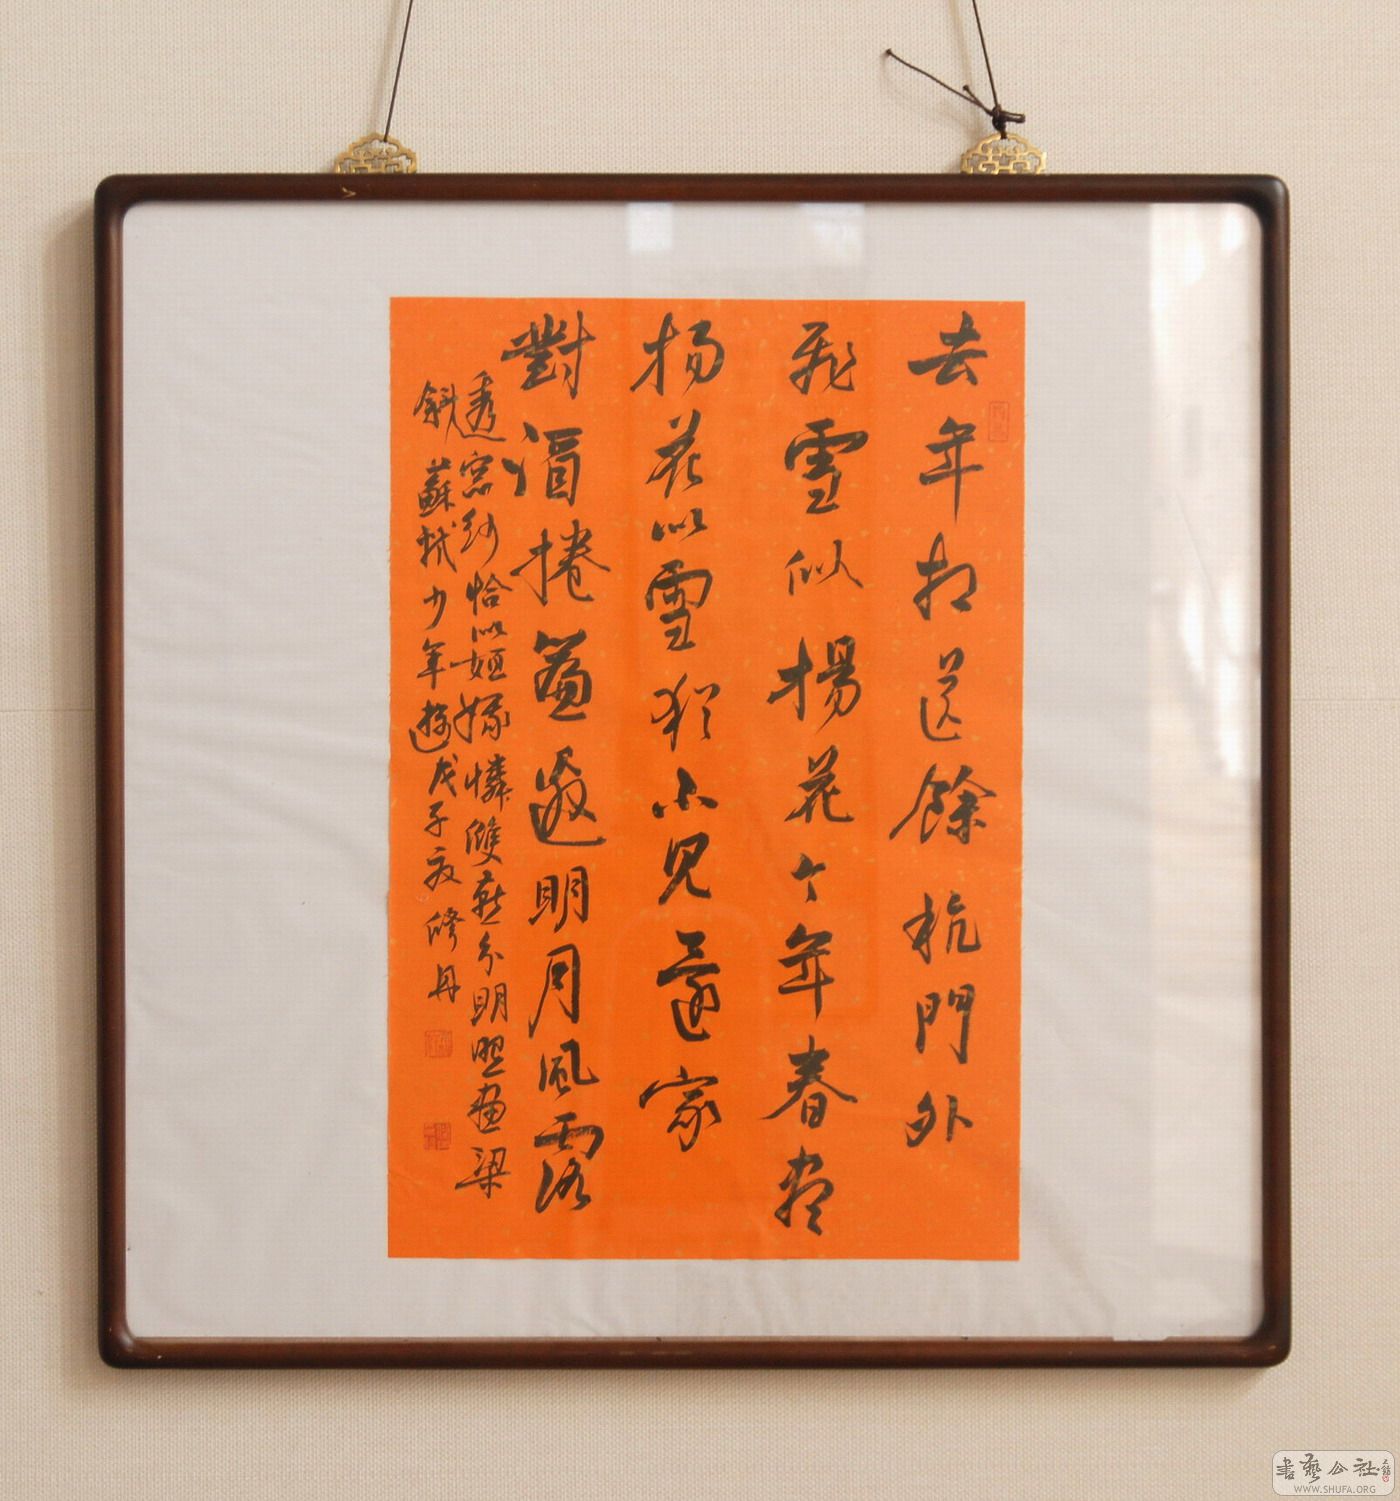 去年相送餘杭門外
飛雪似楊花今年春盡
楊花似雪猶不見還家
對酒捲簾邀明月風露
透窓紗恰似姮娥憐雙燕分明照畫梁
斜蘇軾少年遊戊子夜修丹
書藝公社
WWW.SHUFA.ORG